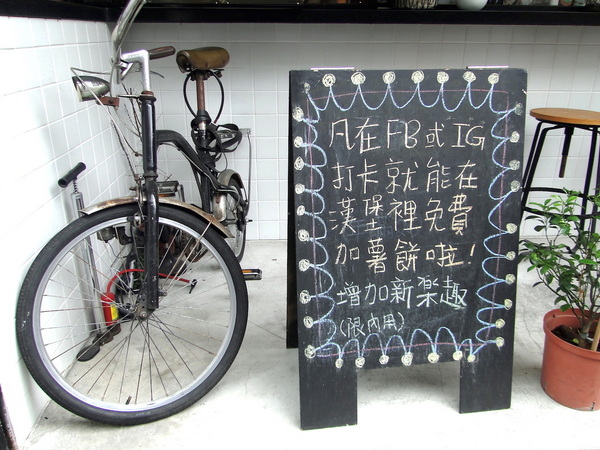 凡在FB或IG
打卡就能在
漢堡裡免費
加薯餅啦!
增加新樂趣
(限內用)